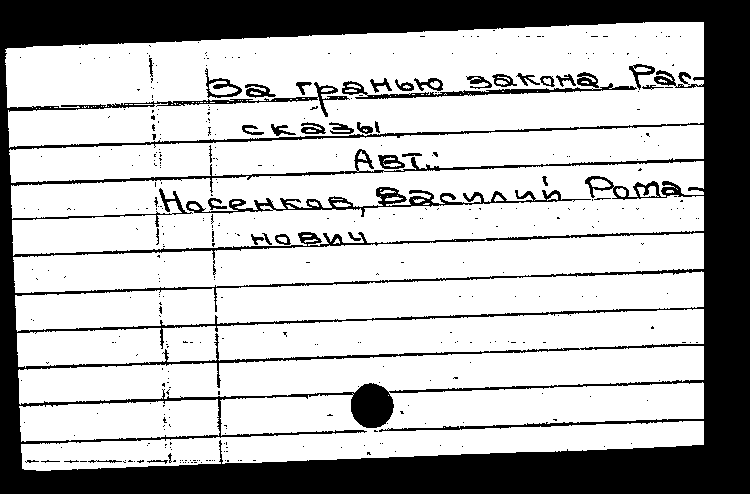 За гранью закона. Рас-
сказы.
Авт.:
Носенков, Василий Рома-
нович